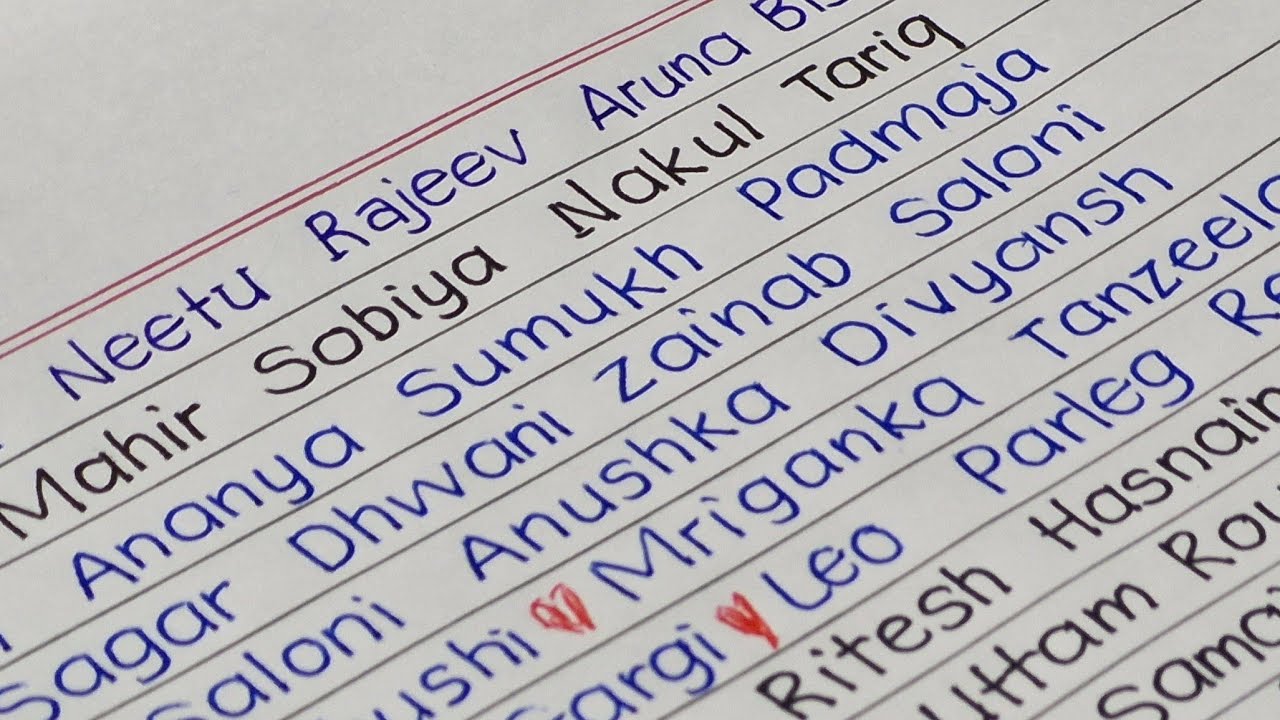 Neetu Rajeev Aruna
Mahir Sobiya Nakul Tariq
Ananya Sumukh Padmaja
Sagar Dhwani Zainab Saloni
Saloni Anushka Divyansh
Mriganka Tanzeela
Leo Parleg
Ritesh Hasnain